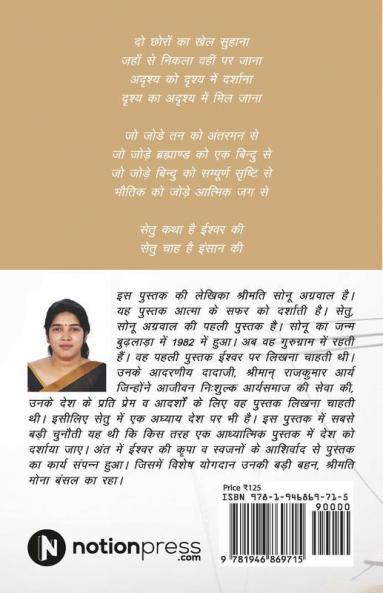 दो छोरों का खेल सुहाना
जहाँ से निकला वहीं पर जाना
अदृश्य को दृश्य में दर्शाना
दृश्य का अदृश्य में मिल जाना
जो जोडे तन को अंतरमन से
जो जोड़े ब्रह्माण्ड को एक बिन्दु से
जो जोड़े बिन्दु को सम्पूर्ण सृष्टि से
भौतिक को जोड़े आत्मिक जग से
सेतु कथा है ईश्वर की
सेतु चाह है इंसान की
इस पुस्तक की लेखिका श्रीमति सोनू अग्रवाल है।
यह पुस्तक आत्मा के सफर को दर्शाती है। सेतु,
सोनू अग्रवाल की पहली पुस्तक है। सोनू का जन्म
बुढ़लाड़ा में 1982 में हुआ। अब वह गुरुग्राम में रहती
हैं। वह पहली पुस्तक ईश्वर पर लिखना चाहती थी।
उनके आदरणीय दादाजी, श्रीमान् राजकुमार आर्य
जिन्होंने आजीवन निःशुल्क आर्यसमाज की सेवा की,
उनके देश के प्रति प्रेम व आदर्शों के लिए वह पुस्तक लिखना चाहती
थी। इसीलिए सेतु में एक अध्याय देश पर भी है। इस पुस्तक में सबसे
बड़ी चुनौती यह थी कि किस तरह एक आध्यात्मिक पुस्तक में देश को
दर्शाया जाए। अंत में ईश्वर की कृपा व स्वजनों के आशिर्वाद से पुस्तक
का कार्य संपन्न हुआ। जिसमें विशेष योगदान उनकी बड़ी बहन, श्रीमति
मोना बंसल का रहा।
Price ₹125
ISBN 978-1-946869-71-5
90000
9 781946 869715
N notionpress
.com